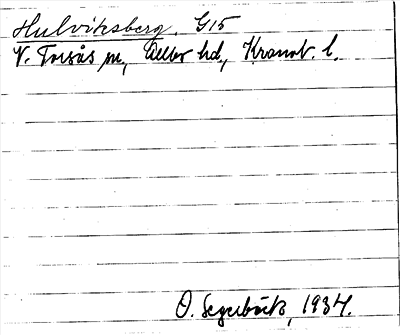 Hulviksberg. G15
V. Torsås sn, Allbo hd, Kronob. l.
O. Segerbäck, 1934.